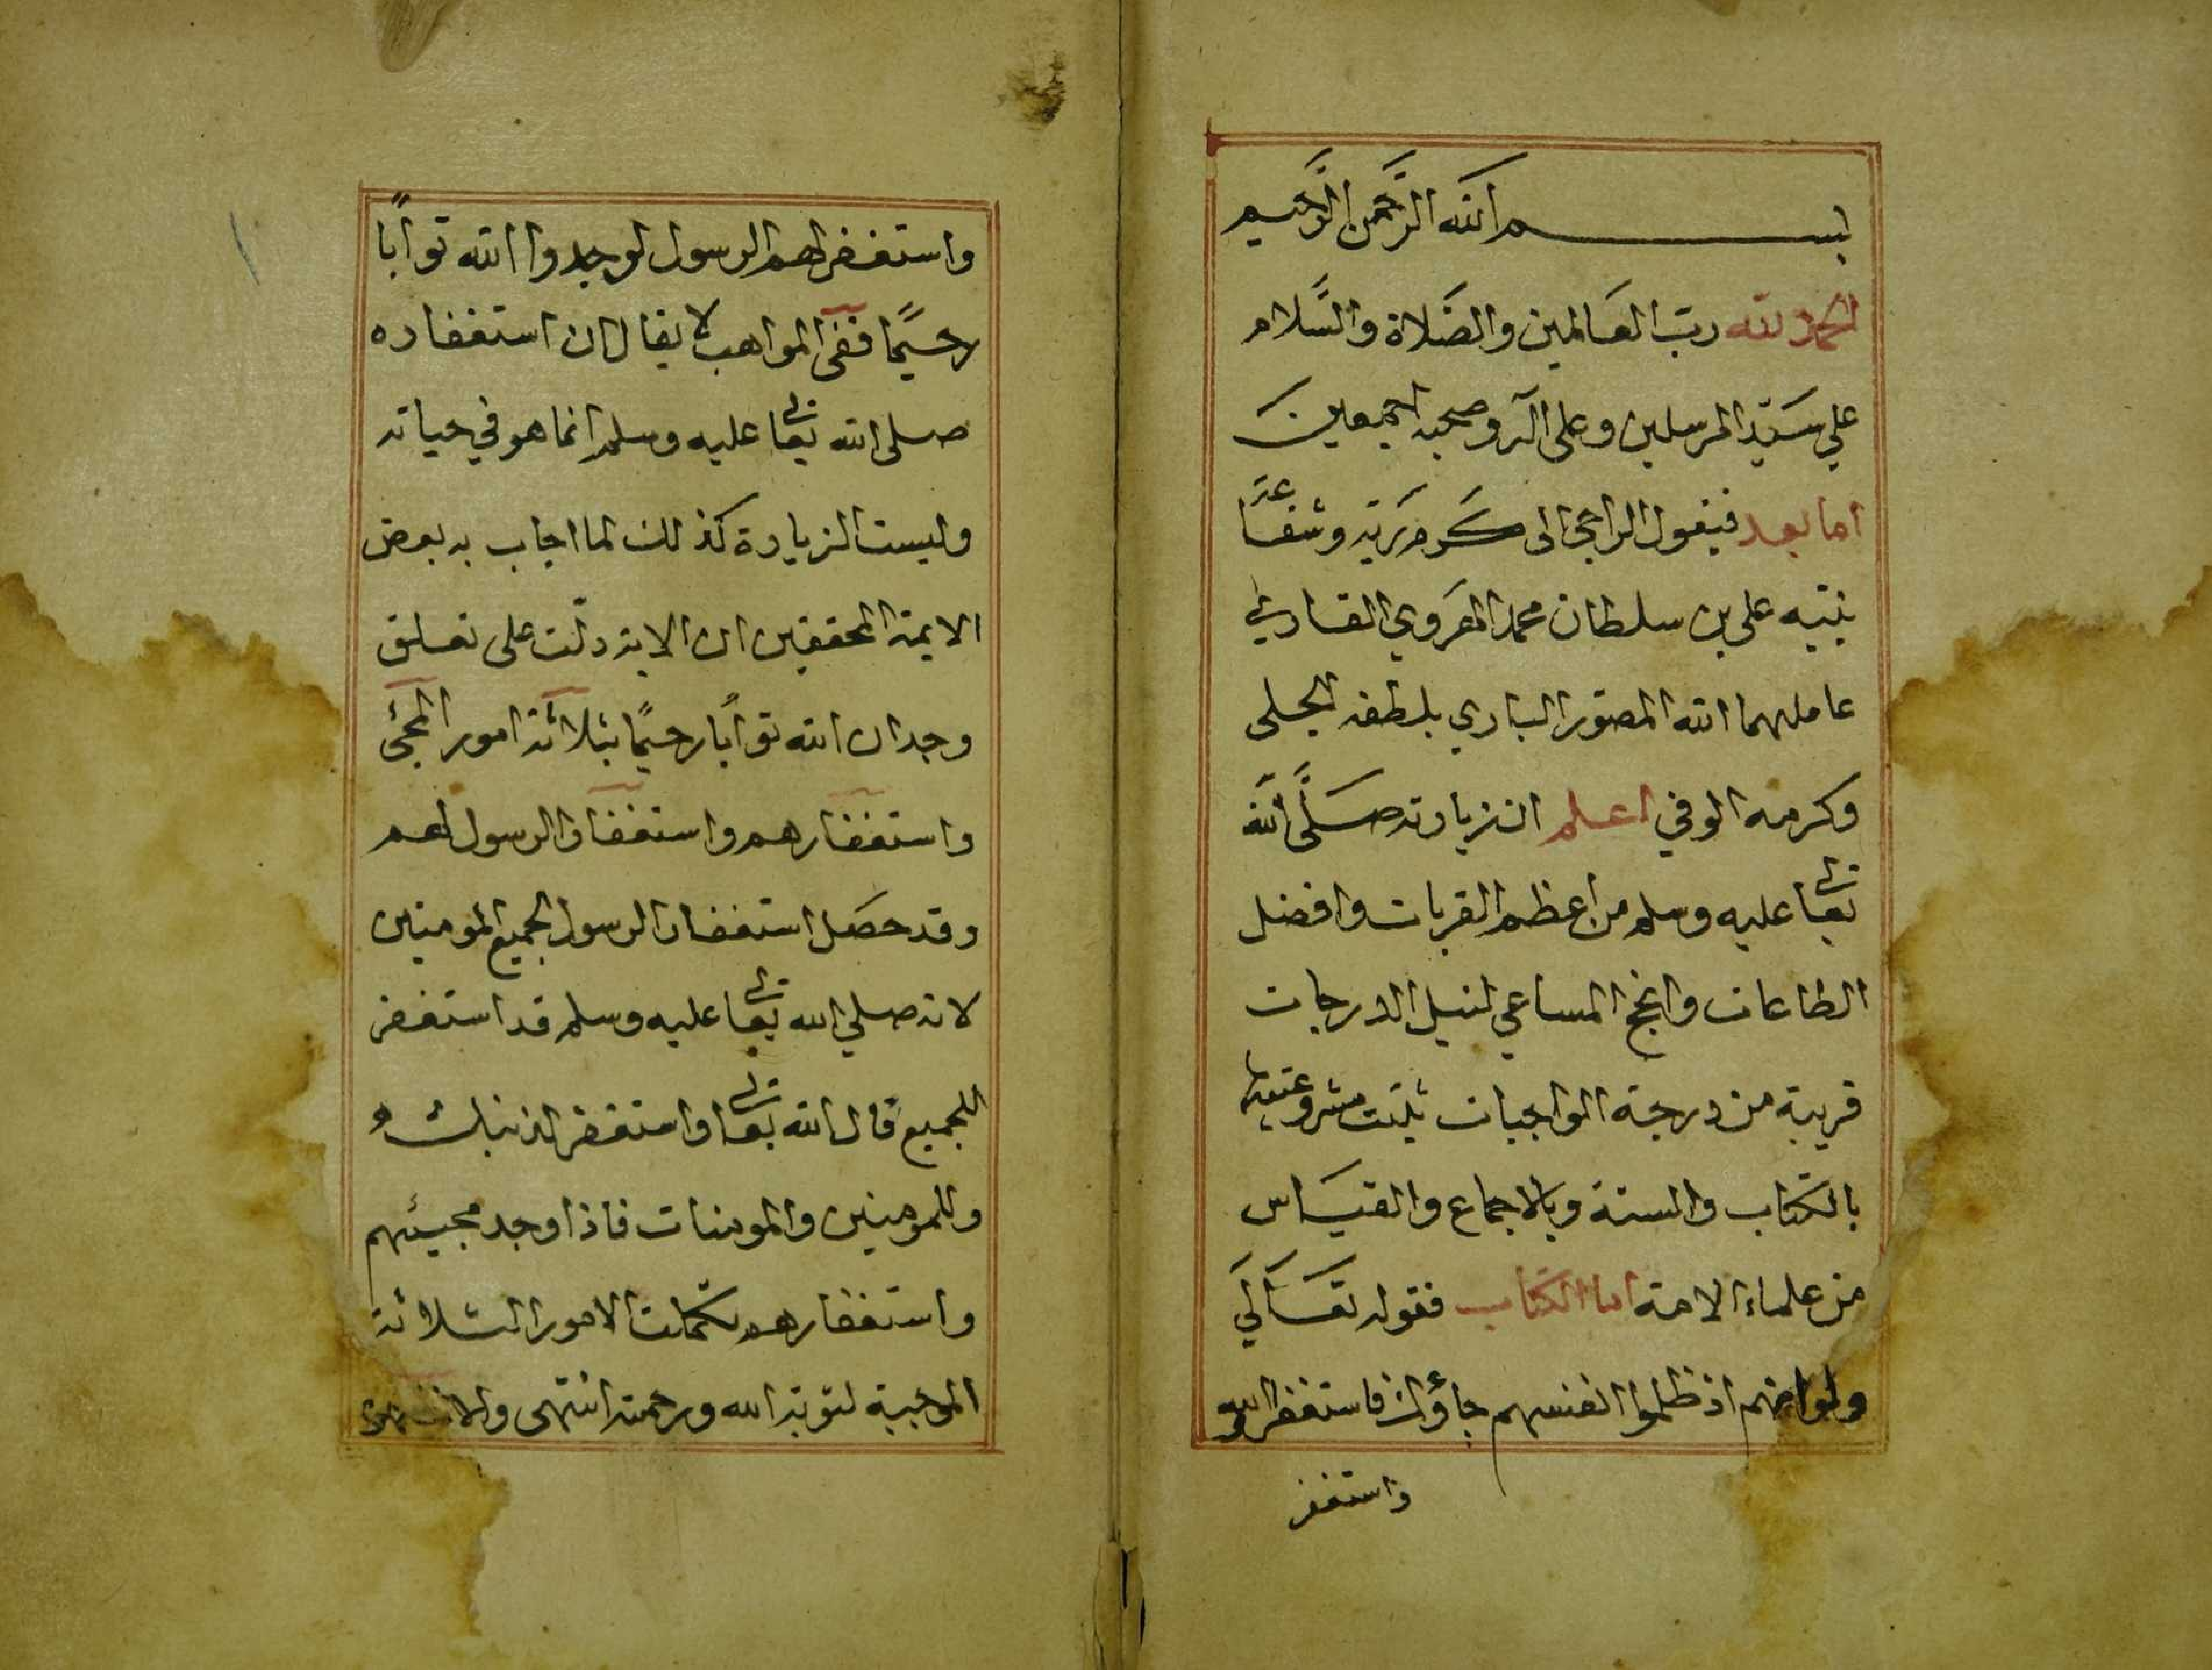 بسم الله الرحمن الرحيم
الحمد لله ربّ العَالمين والصَّلاة والسَّلام
علي سَيّد المرسلين وعلى اله وصحبه اجمعين
اما بعد فيقول الراجى الى كرم ربّه وشفاعة
نبيّه على بن سلطان محمد الهَروي القاري
عاملهما الله المصوّر الباري بلطفه الجلى
وكرمه الوفي اعلم ان زيارته صَلَّى الله
تعالى عليه وسلم من اعظم القربات وافضل
الطاعات وانجح المساعي لنيل الدرجات
قريبة من درجة الواجبات ثبتت مشروعيتها
بالكتاب والسنة وبالاجماع والقيَاس
من علماء الامة اما الكتاب فقوله تعَالَي
ولو انهم اذ ظلموا انفسهم جاؤك فاستغفروا الله
واستغفر
واستغفر لهم الرسول لوجدوا الله توابًا
رحيمًا ففى المواهب لا يقال ان استغفاره
صلى الله تعالى عليه وسلم انما هو في حياته
وليست الزيارة كذلك لما اجاب به بعض
الايمة المحققين ان الاية دلّت على تعلق
وجدان الله توابًا رحيمًا بثلاثة امور المجئ
واستغفارهم واستغفار الرسول لهم
وقد حصَل استغفار الرسول لجميع المومنين
لانه صلي الله تعالى عليه وسلم قد استغفر
للجميع قال الله تعالى واستغفر لذنبك و
وللمومنين والمومنات فاذا وجد مجيئهم
واستغفارهم تكملت الامور الثلاثة
الموجبة لتوبة الله ورحمته انتهى